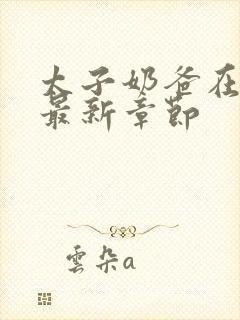 太子奶爸在
最新章节
雲朵a